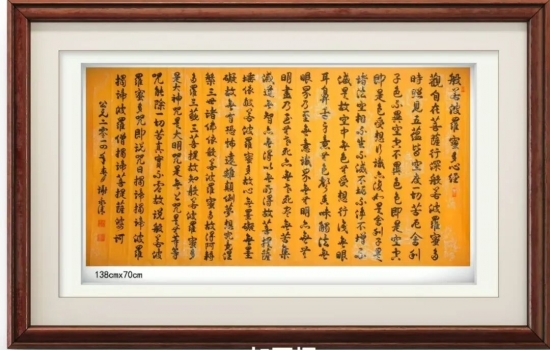 般若波羅蜜多心經
觀自在菩薩行深般若波羅蜜多
時照見五蘊皆空度一切苦厄舍利
子色不異空空不異色色即是空空
即是色受想行識亦復如是舍利子是
諸法空相不生不滅不垢不淨不增不
減是故空中無色無受想行識無眼
耳鼻舌身意無色聲香味觸法無
眼界乃至無意識界無無明亦無無
明盡乃至無老死亦無老死盡無苦集
滅道無智亦無得以無所得故菩提薩
埵依般若波羅蜜多故心無罣礙無罣
礙故無有恐怖遠離顛倒夢想究竟涅
槃三世諸佛依般若波羅蜜多故得阿耨
多羅三藐三菩提故知般若波羅蜜多
是大神咒是大明咒是無上咒是無等等
咒能除一切苦真實不虛故說般若波
羅蜜多咒即說咒曰揭諦揭諦波羅
揭諦波羅僧揭諦菩提薩婆訶
公元二〇一四年
138cmx70cm